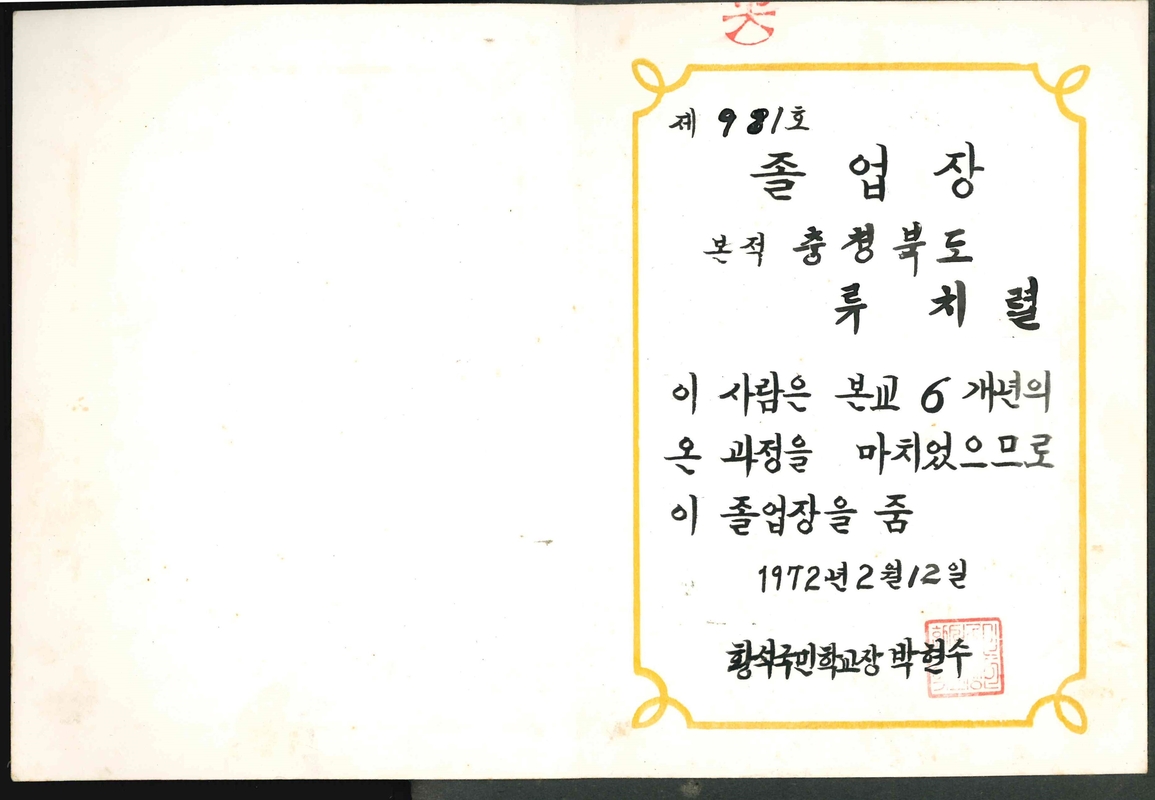 제 981호
졸 업 장
본적 충청북도
류 치 렬
이 사람은 본교 6 개년의
온 과정을 마치었으므로
이 졸업장을 줌
1972년 2월 12일
황석국민학교장 박현수